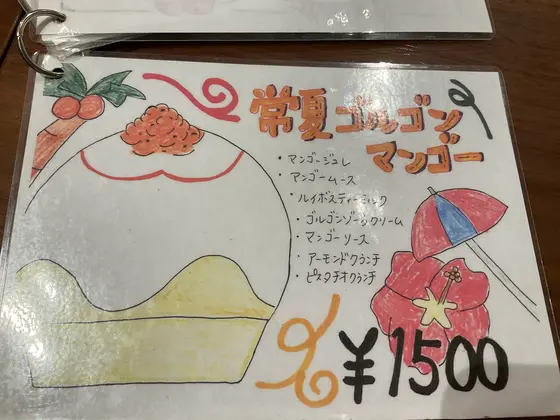 常夏ゴルゴン
マンゴー
・マンゴージュレ
・マンゴームース
・ルイボスティーミルク
・ゴルゴンゾーラクリーム
・マンゴーソース
・アーモンドクランチ
・ピスタチオクランチ
¥1500